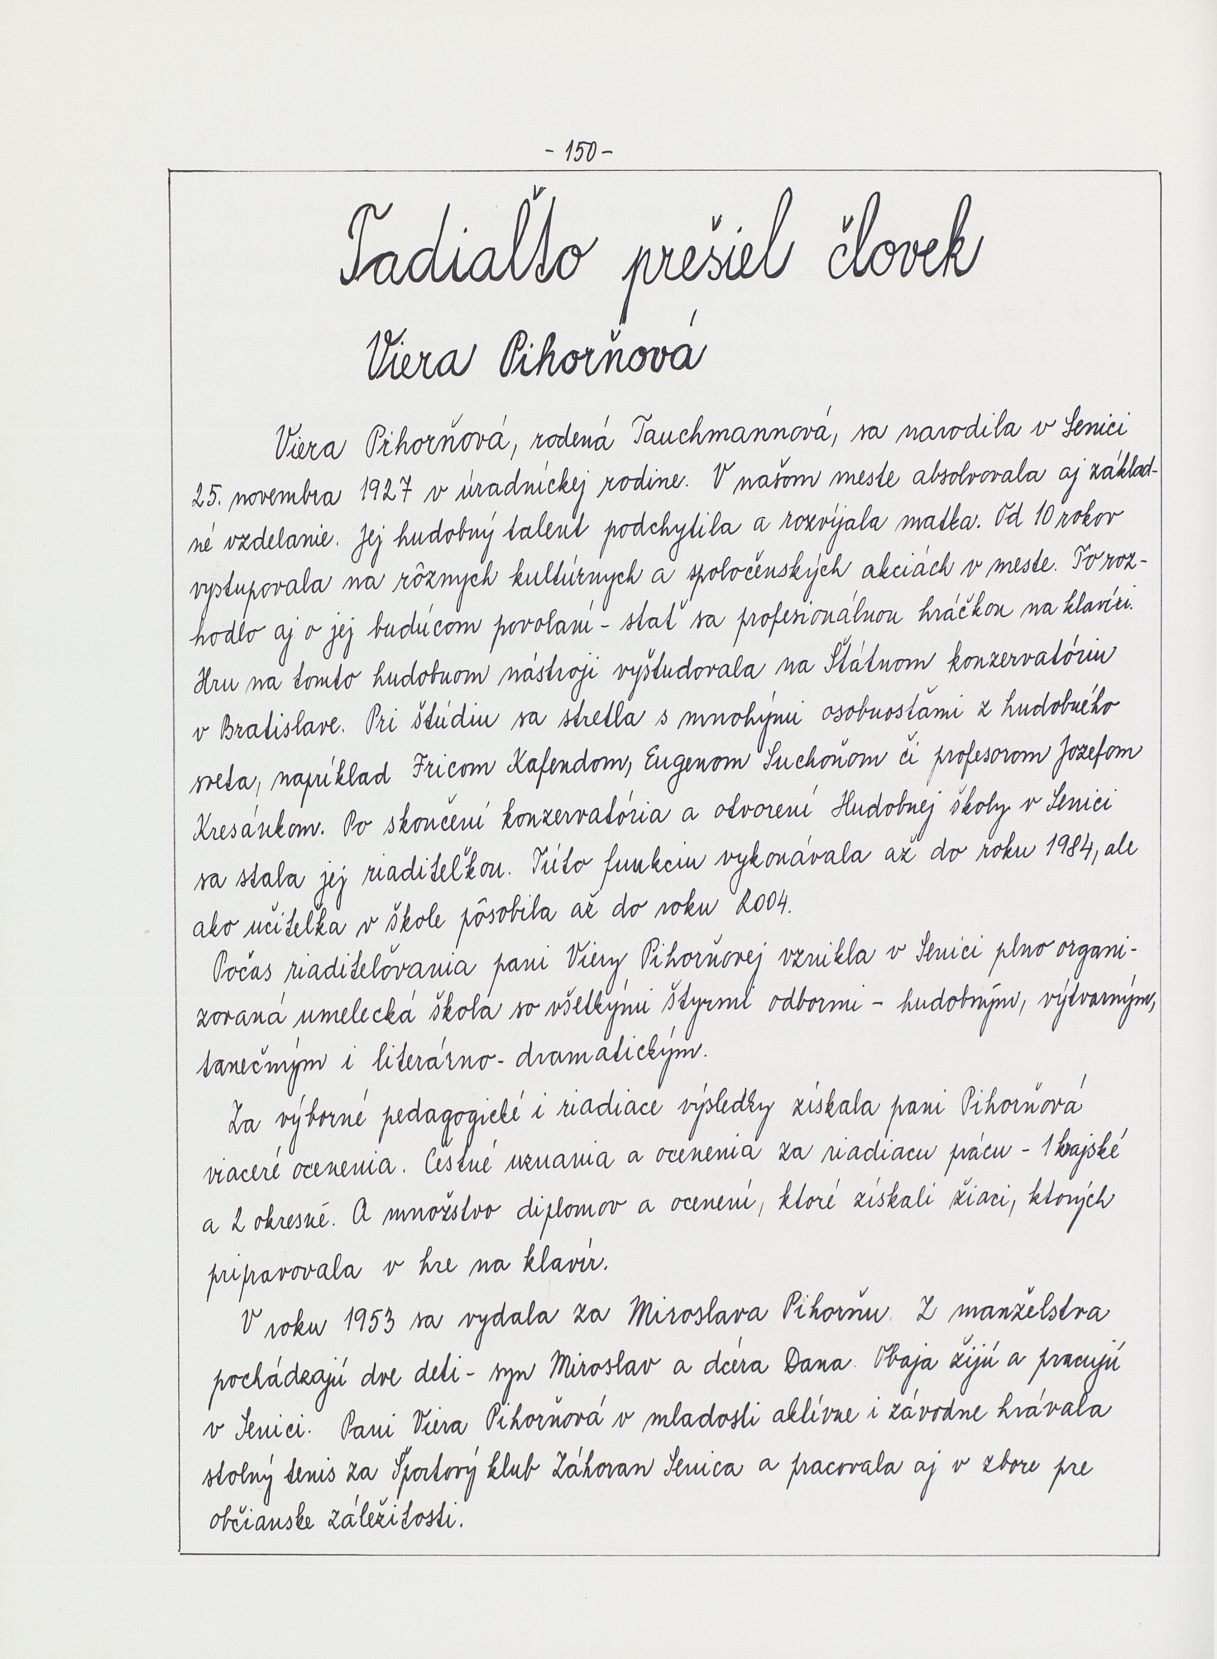 - 150 -
Tadiaľto prešiel človek
Viera Pihorňová
Viera Pihorňová, rodená Tauchmannová, sa narodila v Senici
25. novembra 1927 v úradníckej rodine. V našom meste absolvovala aj základ-
né vzdelanie. Jej hudobný talent podchytila a rozvíjala matka. Od 10 rokov
vystupovala na rôznych kultúrnych a spoločenských akciách v meste. To roz-
hodlo aj o jej budúcom povolaní - stať sa profesionálnou hráčkou na klavíri.
Hru na tomto hudobnom nástroji vyštudovala na Štátnom konzervatóriu
v Bratislave. Pri štúdiu sa stretla s mnohými osobnosťami z hudobného
sveta, napríklad Fricom Kafendom, Eugenom Suchoňom či profesorom Jozefom
Kresánkom. Po skončení konzervatória a otvorení Hudobnej školy v Senici
sa stala jej riaditeľkou. Túto funkciu vykonávala až do roku 1984, ale
ako učiteľka v škole pôsobila až do roku 2004.
Počas riaditeľovania pani Viery Pihorňovej vznikla v Senici plno organi-
zovaná umelecká škola so všetkými štyrmi odbormi - hudobným, výtvarným,
tanečným i literárno-dramatickým.
Za výborné pedagogické i riadiace výsledky získala pani Pihorňová
viaceré ocenenia. Čestné uznania a ocenenia za riadiacu prácu - 1 krajské
a 2 okresné. A množstvo diplomov a ocenení, ktoré získali žiaci, ktorých
pripravovala v hre na klavír.
V roku 1953 sa vydala za Miroslava Pihorňu. Z manželstva
pochádzajú dve deti - syn Miroslav a dcéra Dana. Obaja žijú a pracujú
v Senici. Pani Viera Pihorňová v mladosti aktívne i závodne hrávala
stolný tenis za Športový klub Záhoran Senica a pracovala aj v zbore pre
občianske záležitosti.